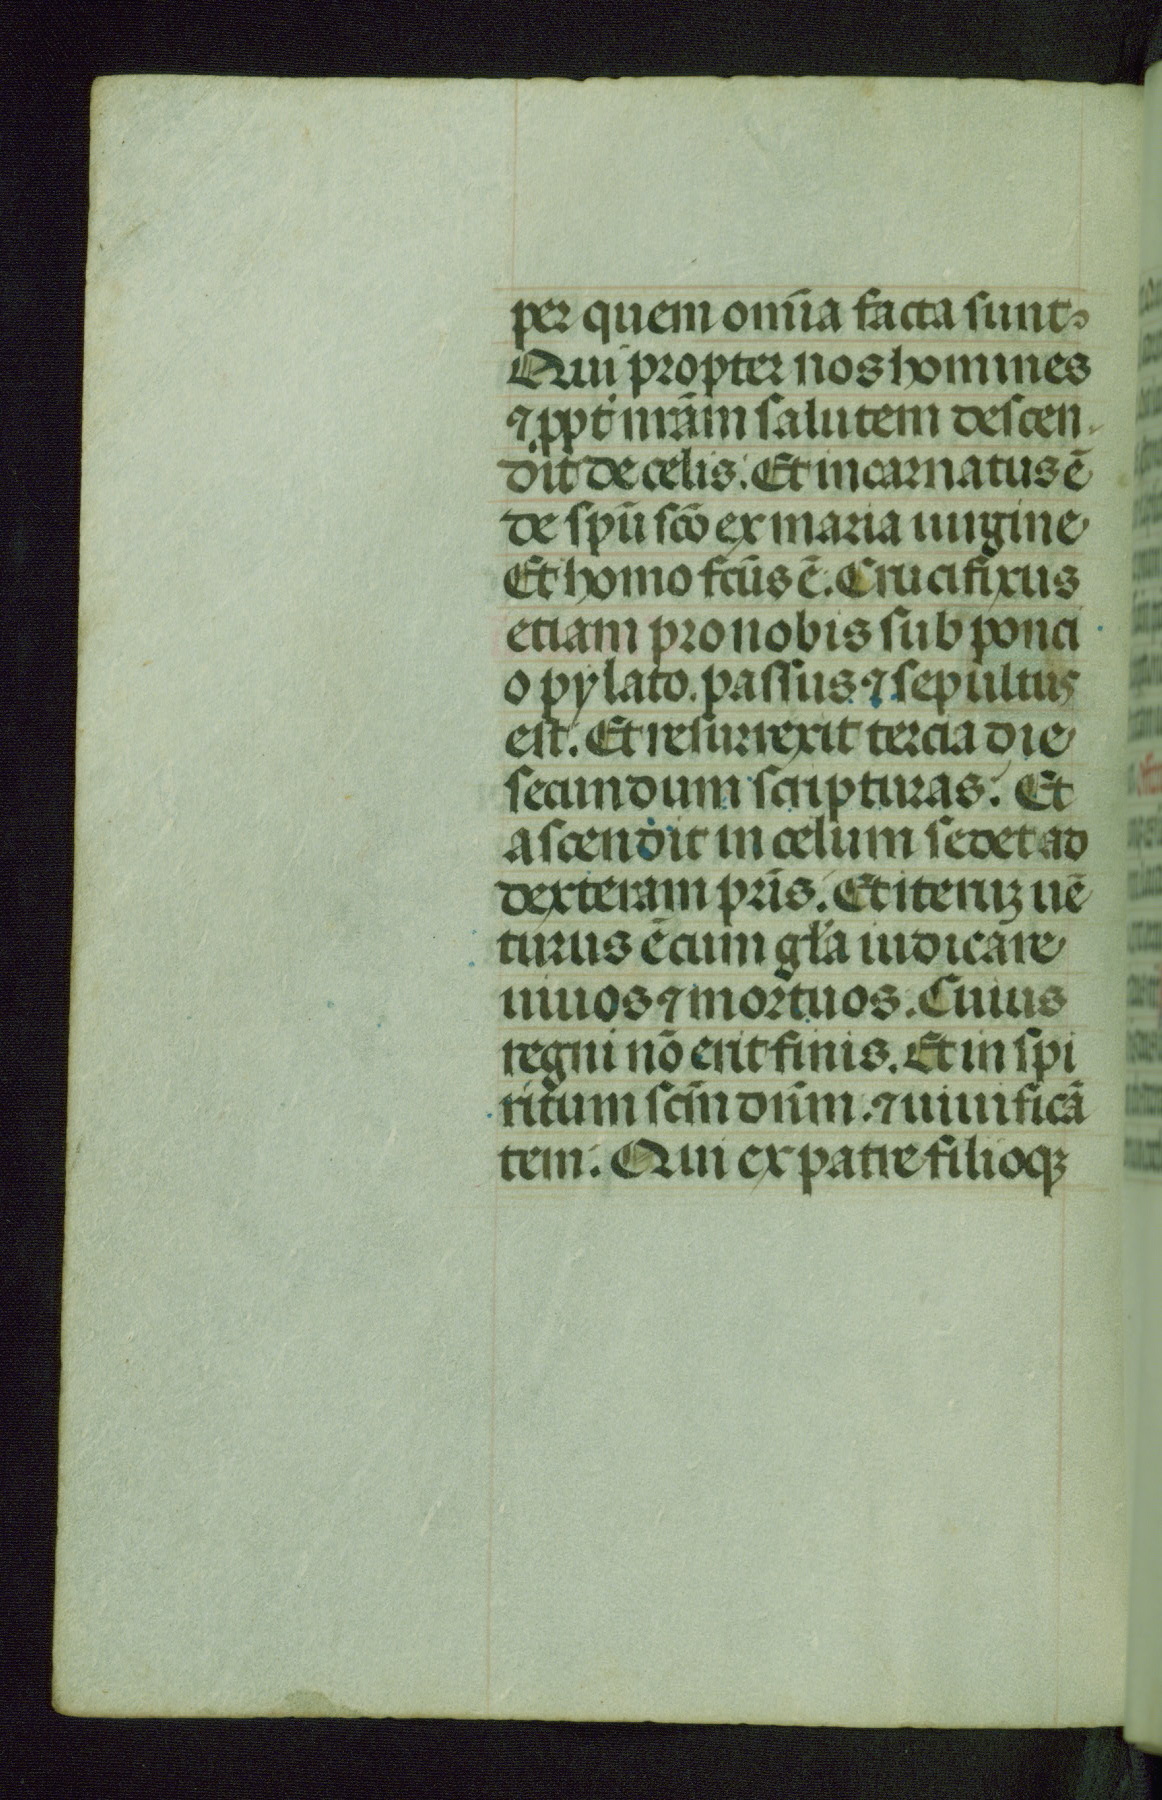 per quem omīa facta sunt.
Qui propter nos homines
⁊ ppt nrām salutem descen
dit de celis. Et incarnatus ē
de spū scō ex maria uirgine
Et homo fcūs ē. Crucifixus
etiam pro nobis sub ponci
o pylato. passus ⁊ sepultus
est. Et resurrexit tercia die
secundum scripturas. Et
ascendit in celum sedet ad
dexteram pris̄. Et iteruꝫ uē
turus ē cum glā iudicare
uiuos ⁊ mortuos. Cuius
regni nō erit finis. Et in spi
ritum scm̄ dnm̄. ⁊ uiuificā
tem. Qui ex patre filioqꝫ